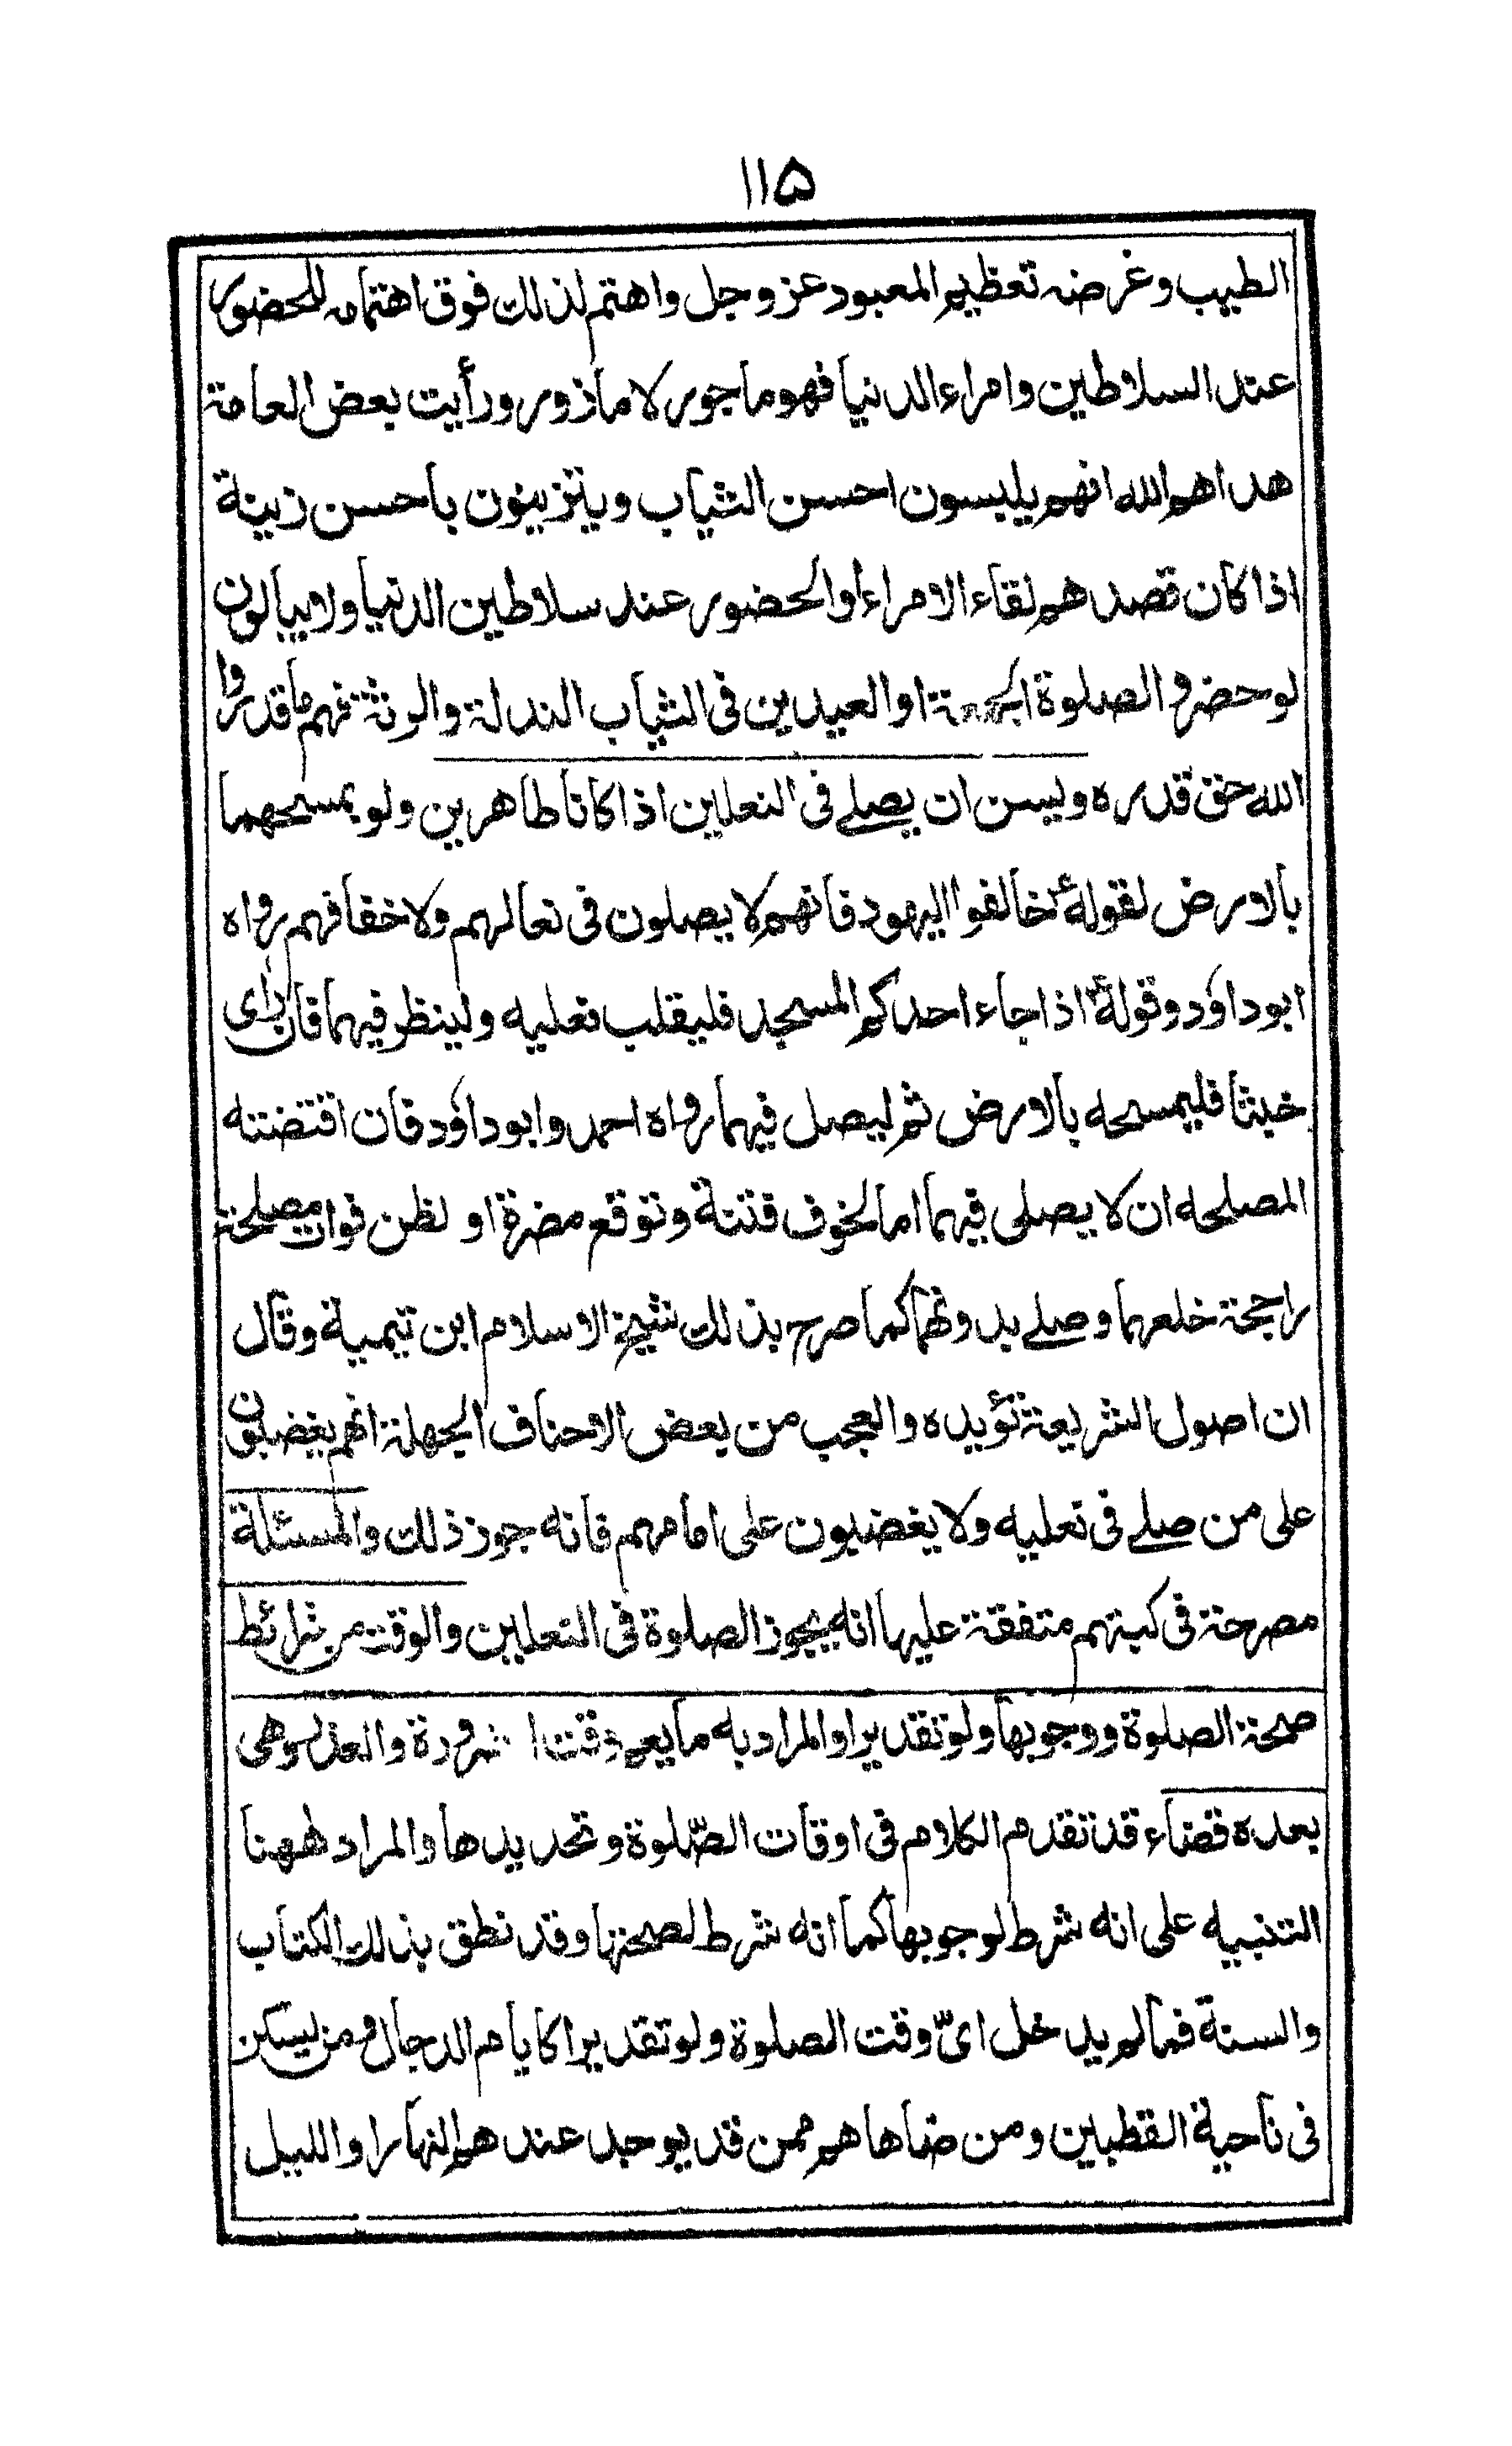 ١١۵
الطيب وغرضه تعظيم المعبود عزوجل واهتم لذلك فوق اهتمامه للحضور
عند السلاطين وامراء الدنيا فهو ماجور لا مأذور ورأيت بعض العامة
هداهم الله انهم يلبسون احسن الثياب ويتزينون باحسن زينة
اذا كان قصدهم لقاء الامراء او الحضور عند سلاطين الدنيا ولا يبالون
لو حضروا الصلوة الجمعة او العيدين فى الثياب البذلة والوثة فهم ما قدروا
الله حق قدره ويسن ان يصلے فى النعلين اذا كانا طاهرين ولو بمسحهما
بالارض لقوله ؐ خالفوا اليهود فانهم لا يصلون فى نعالهم ولا خفافهم رواه
ابوداؤد وقوله ؐ اذا جاء احدكم المسجد فليقلب نعليه ولينظر فيهما فان رأى
خبثا فليمسحه بالارض ثم ليصل فيهما رواه احمد وابوداؤد فان اقتضته
المصلحه ان لا يصلى فيهما اما لخوف فتنة وتوقع مضرة او لظن فوات مصلحة
راجحة خلعهما وصلے بدونهما كما صرح بذلك شيخ الاسلام ابن تيمية وقال
ان اصول الشريعة تؤيده والعجب من بعض الاحناف الجهلة انهم يغضبون
على من صلے فى نعليه ولا يغضبون على امامهم فانه جوز ذلك والمسئلة
مصرحة فى كتبهم متفقة عليها انه يجوز الصلوة فى النعلين والوقت من شرائط
صحة الصلوة ووجوبها ولو تقديرا والمراد به ما يعم وقت ا ضرورة والعذر وهى
بعده قضاء قد تقدم الكلام فى اوقات الصّلوة وتحديدها والمراد ههنا
التنبيه على انه شرط لوجوبها كما انه شرط لصحتها وقد نطق بذلك الكتاب
والسنة فمالم يدخل اىّ وقت الصلوة ولو تقديرا كايام الدجال ومن يسكن
فى ناحية القطبين ومن ضاهاهم ممن قد يوجد عندهم النهار او الليل